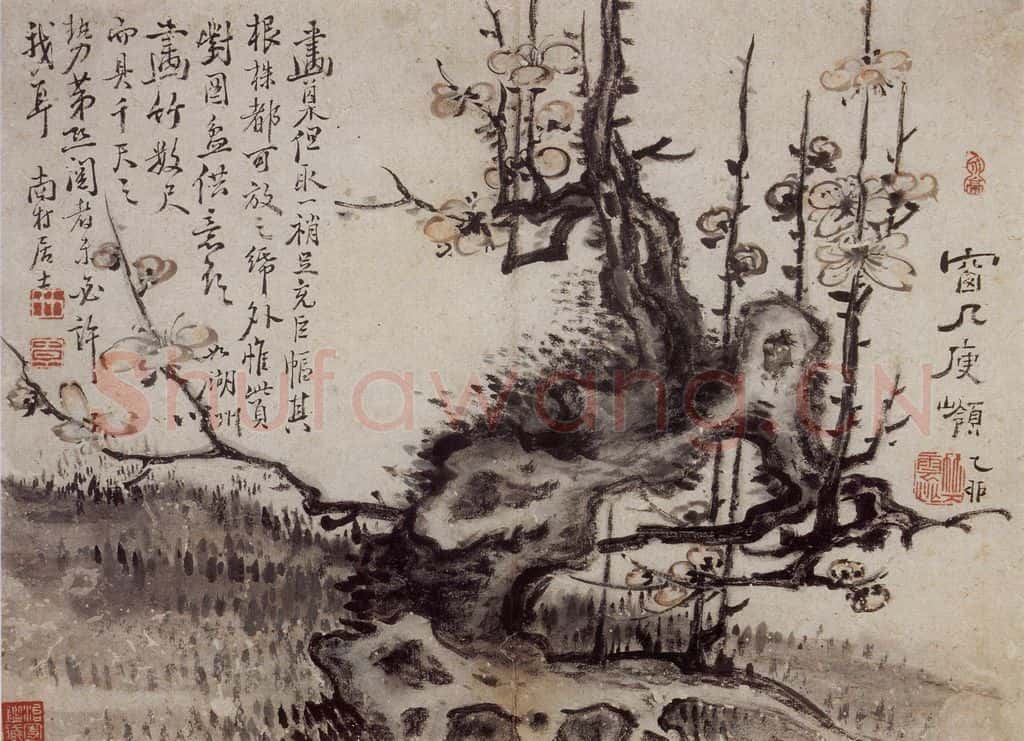 窗几庾嶺 乙卯
畫但取一梢足充巨幅其
根株都可放之外惟
對圖盆供意 如湖州
畫竹數尺
而具千尺之
勢第恐閱者未必許
我耳 南村居士
Shufawang.CN